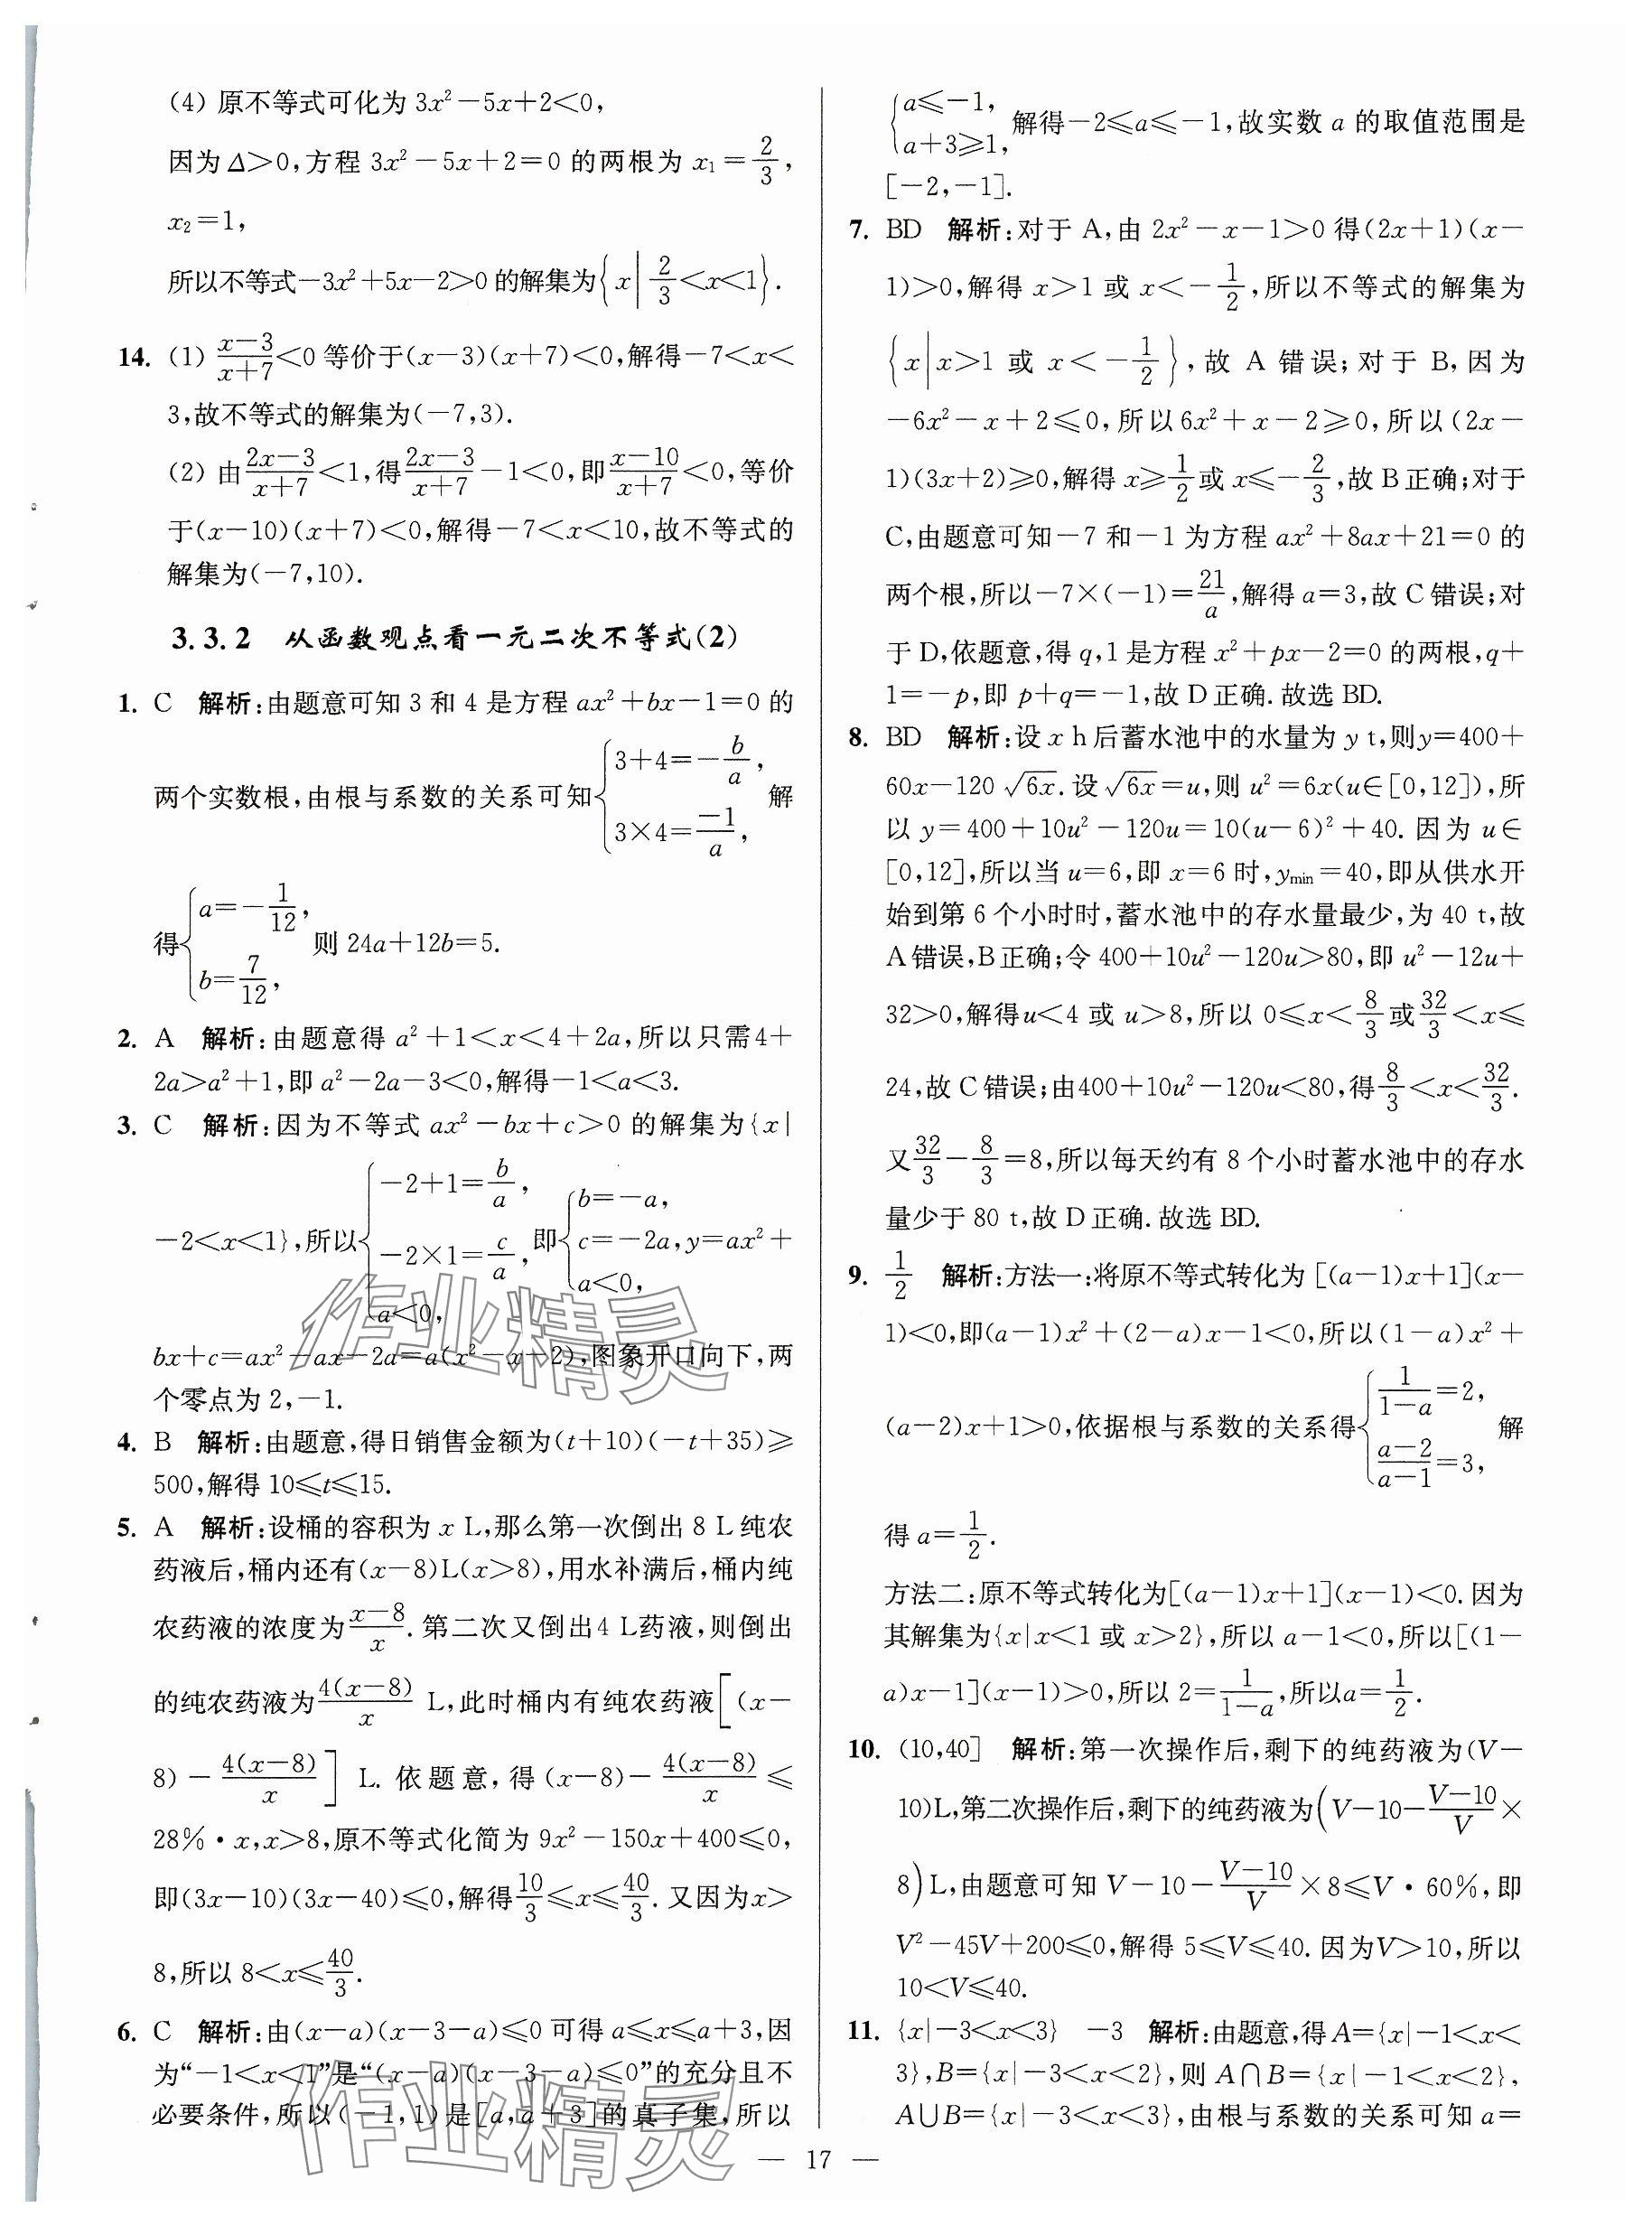 (4) 原不等式可化为 3x²－5x＋2＜0，
因为 Δ＞0，方程 3x²－5x＋2＝0 的两根为 x₁＝2/3，
x₂＝1，
所以不等式－3x²＋5x－2＞0 的解集为{x|2/3＜x＜1}.
14. (1) (x－3)/(x＋7)＜0 等价于(x－3)(x＋7)＜0，解得－7＜x＜
3，故不等式的解集为(－7,3).
(2) 由(2x－3)/(x＋7)＜1，得(2x－3)/(x＋7)－1＜0，即(x－10)/(x＋7)＜0，等价
于(x－10)(x＋7)＜0，解得－7＜x＜10，故不等式的
解集为(－7,10).
3.3.2 从函数观点看一元二次不等式(2)
1. C 解析：由题意可知 3 和 4 是方程 ax²＋bx－1＝0 的
两个实数根，由根与系数的关系可知{3＋4＝－b/a， 3×4＝－1/a， 解
得{a＝－1/12， b＝7/12， 则 24a＋12b＝5.
2. A 解析：由题意得 a²＋1＜x＜4＋2a，所以只需4＋
2a＞a²＋1，即 a²－2a－3＜0，解得－1＜a＜3.
3. C 解析：因为不等式 ax²－bx＋c＞0 的解集为{x|
－2＜x＜1}，所以{－2＋1＝b/a， －2×1＝c/a， a＜0， 即{b＝－a， c＝－2a， a＜0， y＝ax²＋
bx＋c＝ax²－ax－2a＝a(x²－x－2)，图象开口向下，两
个零点为 2，－1.
4. B 解析：由题意，得日销售金额为(t＋10)(－t＋35)≥
500，解得 10≤t≤15.
5. A 解析：设桶的容积为 x L，那么第一次倒出 8 L 纯农
药液后，桶内还有(x－8)L(x＞8)，用水补满后，桶内纯
农药液的浓度为(x－8)/x.第二次又倒出4 L药液，则倒出
的纯农药液为4(x－8)/x L，此时桶内有纯农药液[(x－
8)－4(x－8)/x] L. 依题意，得(x－8)－4(x－8)/x≤
28%·x，x＞8，原不等式化简为 9x²－150x＋400≤0，
即(3x－10)(3x－40)≤0，解得10/3≤x≤40/3.又因为x＞
8，所以 8＜x≤40/3.
6. C 解析：由(x－a)(x－3－a)≤0 可得 a≤x≤a＋3，因
为“－1＜x＜1”是“(x－a)(x－3－a)≤0”的充分且不
必要条件，所以(－1,1)是[a,a＋3]的真子集，所以
{a≤－1， a＋3≥1， 解得－2≤a≤－1，故实数 a 的取值范围是
[－2,－1].
7. BD 解析：对于 A，由 2x²－x－1＞0 得(2x＋1)(x－
1)＞0，解得 x＞1 或 x＜－1/2，所以不等式的解集为
{x|x＞1 或 x＜－1/2}，故 A 错误；对于 B，因为
－6x²－x＋2≤0，所以6x²＋x－2≥0，所以(2x－
1)(3x＋2)≥0，解得 x≥1/2或 x≤－2/3，故 B 正确；对于
C，由题意可知－7 和－1 为方程 ax²＋8ax＋21＝0 的
两个根，所以－7×(－1)＝21/a，解得 a＝3，故 C 错误；对
于 D，依题意，得 q,1 是方程 x²＋px－2＝0 的两根，q＋
1＝－p，即 p＋q＝－1，故 D 正确.故选 BD.
8. BD 解析：设 x h 后蓄水池中的水量为 y t，则y＝400＋
60x－120√(6x).设√(6x)＝u，则 u²＝6x(u∈[0,12])，所
以 y＝400＋10u²－120u＝10(u－6)²＋40. 因为 u∈
[0,12]，所以当 u＝6，即 x＝6 时，yₘᵢₙ＝40，即从供水开
始到第 6 个小时时，蓄水池中的存水量最少，为 40 t，故
A 错误，B 正确；令 400＋10u²－120u＞80，即 u²－12u＋
32＞0，解得u＜4 或 u＞8，所以 0≤x＜8/3或32/3＜x≤
24，故 C 错误；由400＋10u²－120u＜80，得8/3＜x＜32/3.
又32/3－8/3＝8，所以每天约有 8 个小时蓄水池中的存水
量少于 80 t，故 D 正确.故选 BD.
9. 1/2 解析：方法一：将原不等式转化为[(a－1)x＋1](x－
1)＜0，即(a－1)x²＋(2－a)x－1＜0，所以(1－a)x²＋
(a－2)x＋1＞0，依据根与系数的关系得{1/(1－a)＝2， (a－2)/(a－1)＝3， 解
得 a＝1/2.
方法二：原不等式转化为[(a－1)x＋1](x－1)＜0. 因为
其解集为{x|x＜1 或 x＞2}，所以 a－1＜0，所以[(1－
a)x－1](x－1)＞0，所以 2＝1/(1－a)，所以a＝1/2.
10. (10,40] 解析：第一次操作后，剩下的纯药液为(V－
10)L，第二次操作后，剩下的纯药液为(V－10－(V－10)/V×
8)L，由题意可知 V－10－(V－10)/V×8≤V·60%，即
V²－45V＋200≤0，解得 5≤V≤40. 因为V＞10，所以
10＜V≤40.
11. {x|－3＜x＜3} －3 解析：由题意，得 A＝{x|－1＜x＜
3}，B＝{x|－3＜x＜2}，则 A∩B＝{x|－1＜x＜2}，
A∪B＝{x|－3＜x＜3}，由根与系数的关系可知 a＝
— 17 —
作业精灵
作业精灵